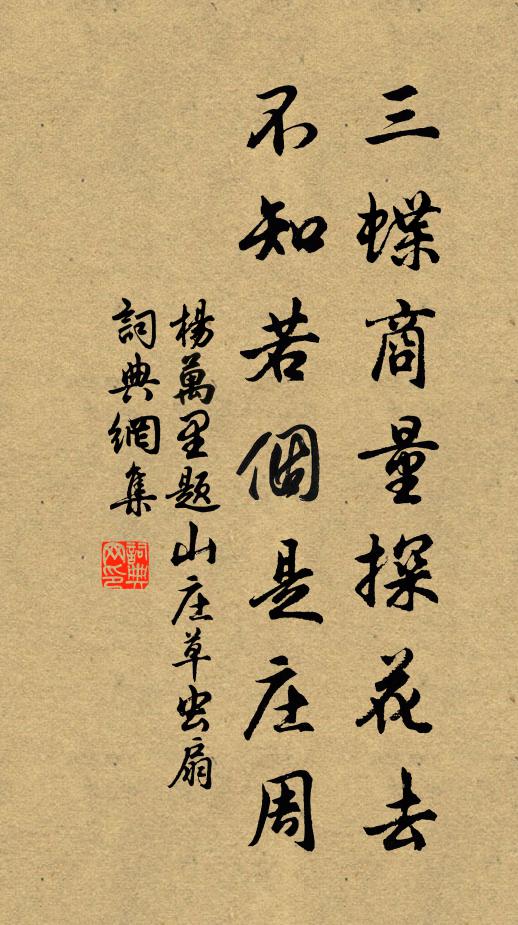 三蝶商量探花去
不知若個是庄周
楊萬里题山庄草虫扇
詞典網集
詞典網印